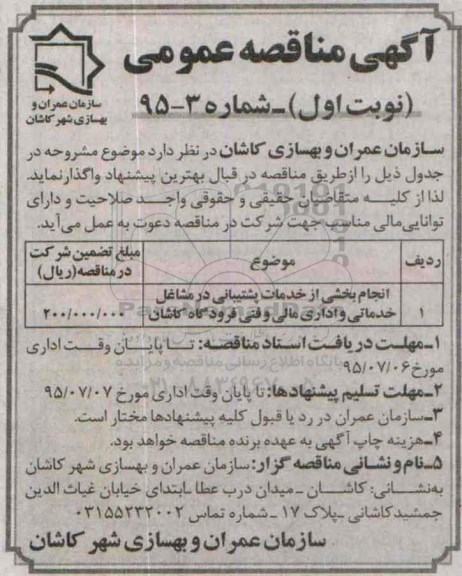 آگهی مناقصه عمومی
(نوبت اول) ـ شماره ۳-۹۵
سازمان عمران و
بهسازی شهر کاشان
سازمان عمران و بهسازی کاشان در نظر دارد موضوع مشروحه در
جدول ذیل را از طریق مناقصه در قبال بهترین پیشنهاد واگذار نماید.
لذا از کلیه متقاضیان حقیقی و حقوقی واجد صلاحیت و دارای
توانایی مالی مناسب جهت شرکت در مناقصه دعوت به عمل می‌آید.
ردیف موضوع مبلغ تضمین شرکت در مناقصه (ریال)
۱ انجام بخشی از خدمات پشتیبانی در مشاغل
خدماتی و اداری مالی و فنی فرودگاه کاشان ۲۰۰/۰۰۰/۰۰۰
۱ـ مهلت دریافت اسناد مناقصه: تا پایان وقت اداری
مورخ ۹۵/۰۷/۰۶
۲ـ مهلت تسلیم پیشنهادها: تا پایان وقت اداری مورخ ۹۵/۰۷/۰۷
۳ـ سازمان عمران در رد یا قبول کلیه پیشنهادها مختار است.
۴ـ هزینه چاپ آگهی به عهده برنده مناقصه خواهد بود.
۵ـ نام و نشانی مناقصه گزار: سازمان عمران و بهسازی شهر کاشان
به نشانی: کاشان ـ میدان درب عطا ـ ابتدای خیابان غیاث الدین
جمشید کاشانی ـ پلاک ۱۷ ـ شماره تماس ۰۳۱۵۵۲۳۲۰۰۲
سازمان عمران و بهسازی شهر کاشان